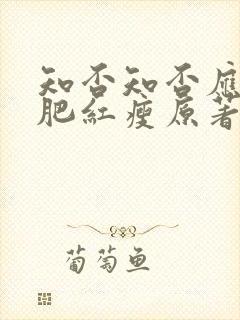 知否知否應
肥紅瘦原著
葡萄鱼